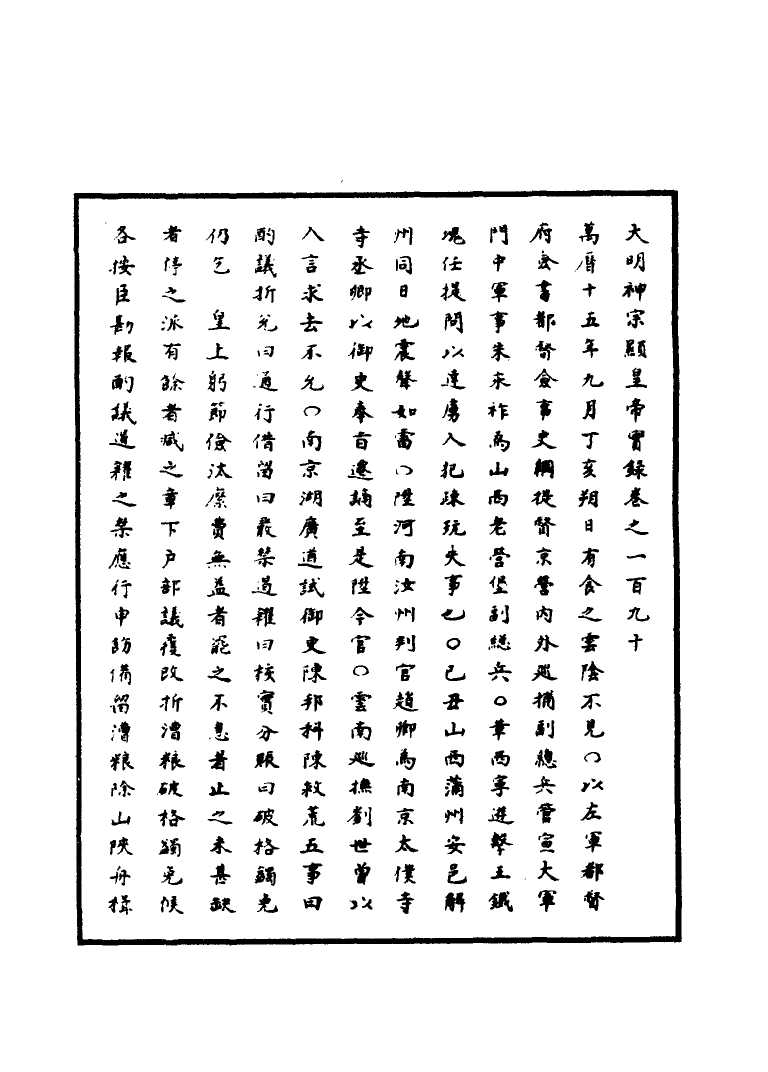 大明神宗顯皇帝實錄卷之一百九十
萬曆十五年九月丁亥朔日有食之雲陰不見〇以左軍都督
府僉書都督僉事史綱提督京營內外廵捕副總兵管宣大軍
門中軍事朱來祚為山西老營堡副總兵〇革西寧遊擊王鐵
塊任提問以達虜入犯疎玩失事也〇己丑山西蒲州安邑解
州同日地震聲如雷〇陞河南汝州判官趙卿為南京太僕寺
寺丞卿以御史奉旨遷謫至是陞今官〇雲南廵撫劉世曾以
人言求去不允〇南京湖廣道試御史陳邦科陳救荒五事曰
酌議折兌曰通行借留曰嚴禁遏糴曰核實分賑曰破格蠲免
仍乞　皇上躬節儉汰縻費無益者罷之不急者止之未甚缺
者停之派有餘者減之章下户部議覆改折漕粮破格蠲免候
各按臣勘報酌議遏糴之禁應行申飭備留漕粮除山陜舟楫